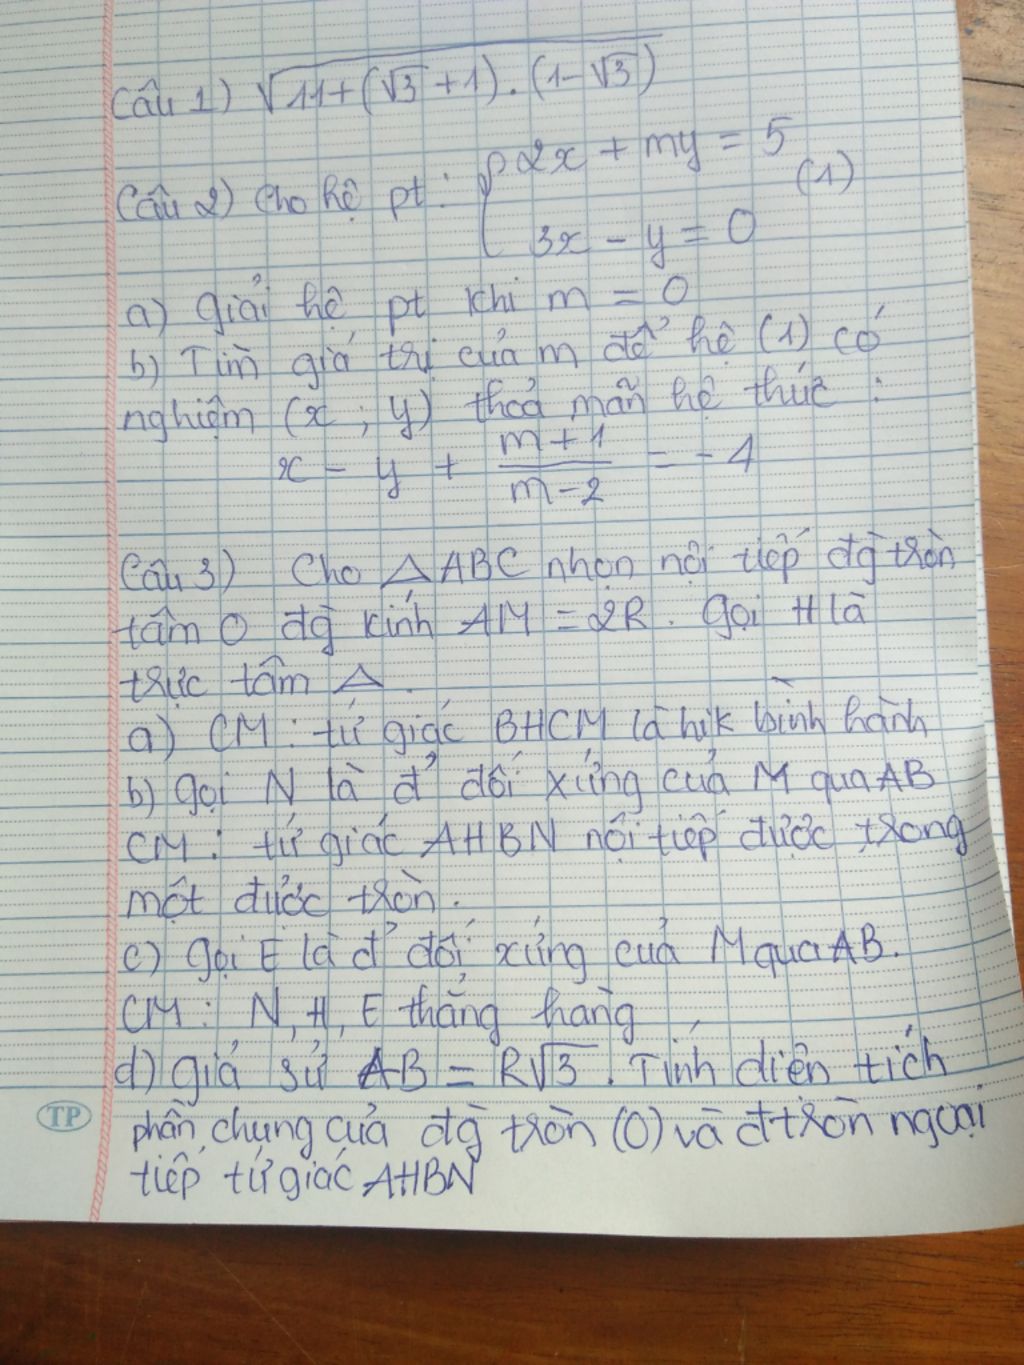 Câu 1) √11+(√3+1).(1-√3)
Câu 2) Cho hệ pt: { 2x + my = 5
(1)
3x - y = 0
a) Giải hệ pt khi m = 0
b) Tìm giá trị của m để hệ (1) có
nghiệm (x ; y) thoả mãn hệ thức :
x - y + (m+1)/(m-2) = -4
Câu 3) Cho △ABC nhọn nội tiếp đg tròn
tâm O đg kính AM = 2R. Gọi H là
trực tâm △.
a) CM: tứ giác BHCM là hìk bình hành
b) Gọi N là đ' đối xứng của M qua AB
CM: tứ giác AHBN nội tiếp được trong
một được tròn.
c) Gọi E là đ' đối xứng của M qua AB.
CM: N, H, E thẳng hàng
d) Giả sử AB = R√3. Tính diện tích
phần chung của đg tròn (O) và đtròn ngoại
tiếp tứ giác AHBN
TP